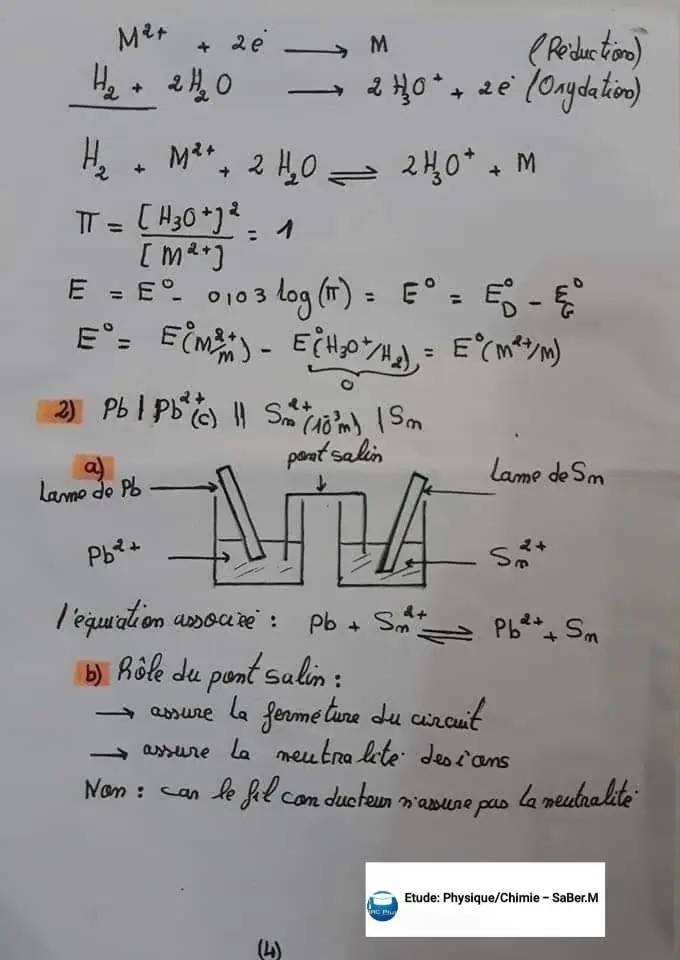 M²⁺ + 2e⁻ → M (Réduction)
H₂ + 2H₂O → 2H₃O⁺ + 2e⁻ (Oxydation)
H₂ + M²⁺ + 2H₂O ⇌ 2H₃O⁺ + M
π = [H₃O⁺]² / [M²⁺] = 1
E = E° - 0,03 log(π) = E° = E°D - E°G
E° = E°(M²⁺/M) - E°(H₃O⁺/H₂) = E°(M²⁺/M)
0
2) Pb | Pb²⁺(C) || Sn²⁺(10⁻³M) | Sn
a)
pont salin
Lame de Pb
Lame de Sn
Pb²⁺
Sn²⁺
l'équation associée : Pb + Sn²⁺ ⇌ Pb²⁺ + Sn
b) Rôle du pont salin :
→ assure la fermeture du circuit
→ assure la neutralité des ions
Non : car le fil conducteur n'assure pas la neutralité
Etude: Physique/Chimie – SaBer.M
(4)